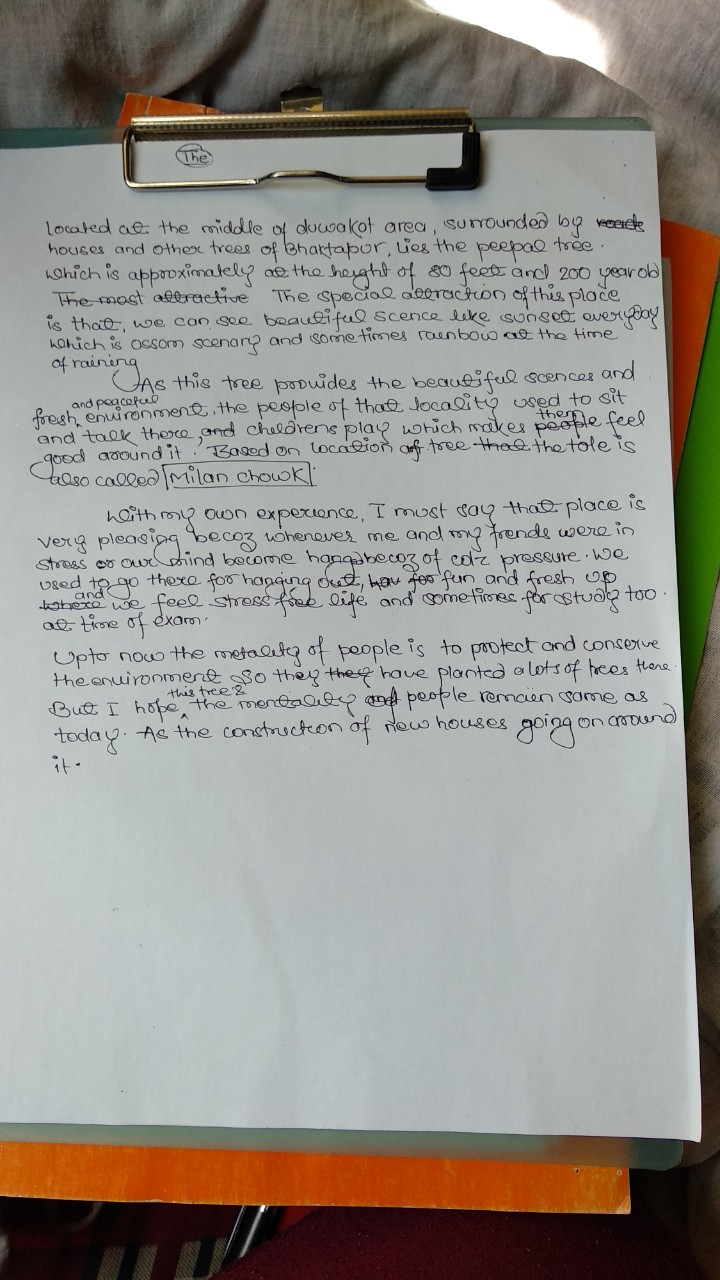 The
located at the middle of duwakot area, surrounded by
houses and other trees of Bhaktapur, Lies the peepal tree.
which is approximately at the height of 80 feet and 200 year old
The most attractive The special attraction of this place
is that, we can see beautiful scence like sunset everyday
which is ossom scenary and some times rainbow at the time
of raining
As this tree provides the beautiful scences and
and peaceful
fresh environment, the people of that locality used to sit
and talk there, and childrens play which makes people them feel
good around it. Based on location of tree that the tole is
also called Milan chowk.
With my own experience, I must say that place is
very pleasing becoz whenever me and my frends were in
stress or our mind become hanged becoz of coz pressure. We
used to go there for hanging out, for fun and fresh up
where and we feel stress free life and sometimes for study too.
at time of exam.
Upto now the metality of people is to protect and conserve
the environment so they they have planted a lots of trees there.
this tree &
But I hope the mentality and people remain same as
today. As the construction of new houses going on around
it.